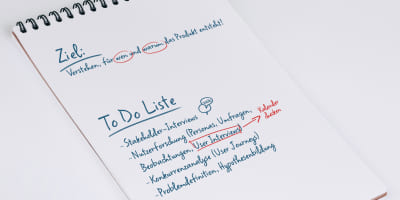 Ziel:
Verstehen, für wen und warum das Produkt entsteht!
To Do Liste
- Stakeholder-Interviews
- Nutzerforschung (Personas, Umfragen,
Beobachtungen, User Interviews)
Kalender
checken
- Konkurrenzanalyse (User Journeys)
- Problemdefinition, Hypothesenbildung